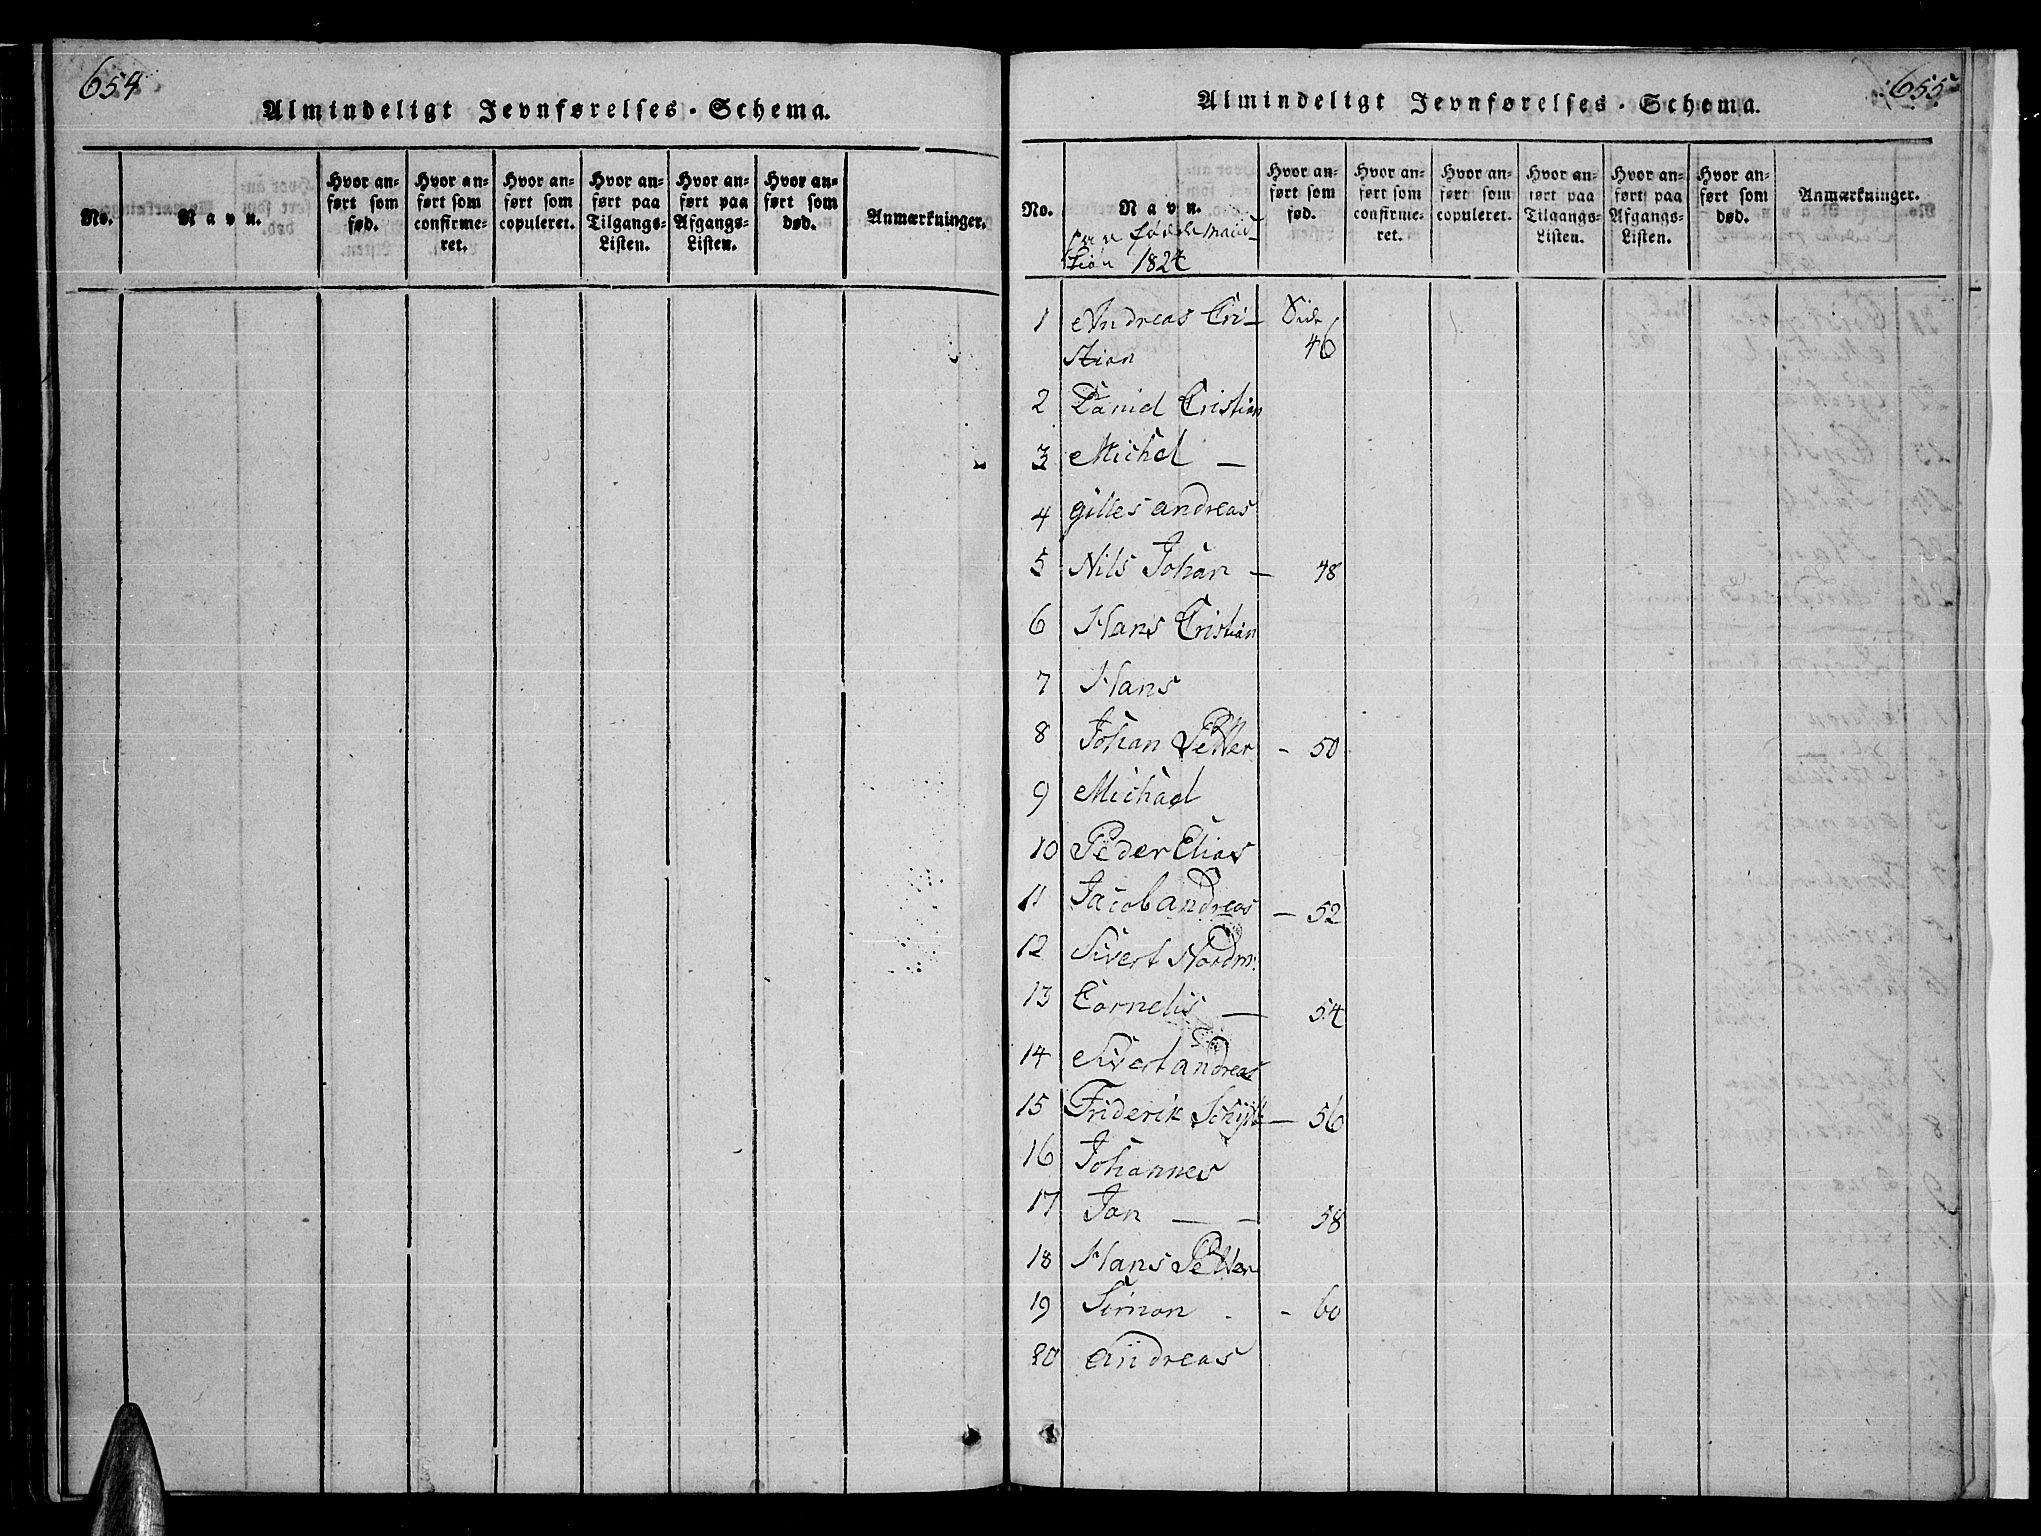 654
Almindeligt Jevnførelses-Schema.
No.
Navn.
Hvor anført som fød.
Hvor anført som confirmeret.
Hvor anført som copuleret.
Hvor anført paa Tilgangs-Listen.
Hvor anført paa Afgangs-Listen.
Hvor anført som død.
Anmærkninger.
655
Almindeligt Jevnførelses-Schema.
No.
Navn.
fødde Mand-
kiøn 1824
Hvor anført som fød.
Hvor anført som confirmeret.
Hvor anført som copuleret.
Hvor anført paa Tilgangs-Listen.
Hvor anført paa Afgangs-Listen.
Hvor anført som død.
Anmærkninger.
1 Andreas Cri- Side
stian 46
2 Daniel Cristian
3 Michel —
4 gilles andreas
5 Nils Johan — 48
6 Hans Cristian
7 Hans
8 Johan Petter - 50
9 Michael
10 Peder Elias
11 Jacob andreas — 52
12 Sivert Nordm:
13 Cornelis — 54
14 Sivert andreas
15 Friderik Schytt — 56
16 Johannes
17 Jan — - 58
18 Hans Petter
19 Simon - 60
20 Andreas